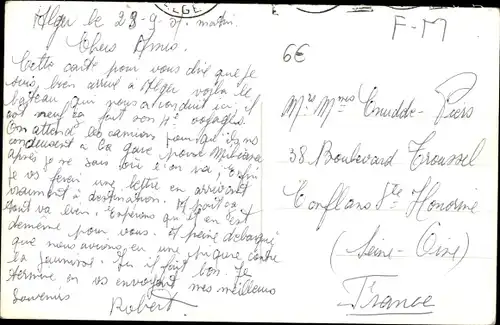 Alger le 23-9-57. matin.
Chers Amis.
Cette carte pour vous dire que je
suis bien arrivé à Alger voilà le
bateau qui nous a conduit ici, il
est neuf ça fait son 4e voyages.
On attend les camions pour qu'ils nous
conduisent à la gare pour
après je ne sais où l'on va; Enfin
je vs ferai une lettre en arrivant
vraiment à destination. A part ça
tout va bien. Espérons qu'il en est
de même pour vous. A peine débarqué
que nous avions eu une piqure contre
la jaunisse. Ici il fait bon. Je
termine en vs envoyant mes meilleurs
souvenirs
Robert.
ALGE
F-M
6€
Mr et Mmes Cnudde-Piers
38 Boulevard Troussel
Conflans Ste Honorine
(Seine-Oise)
France